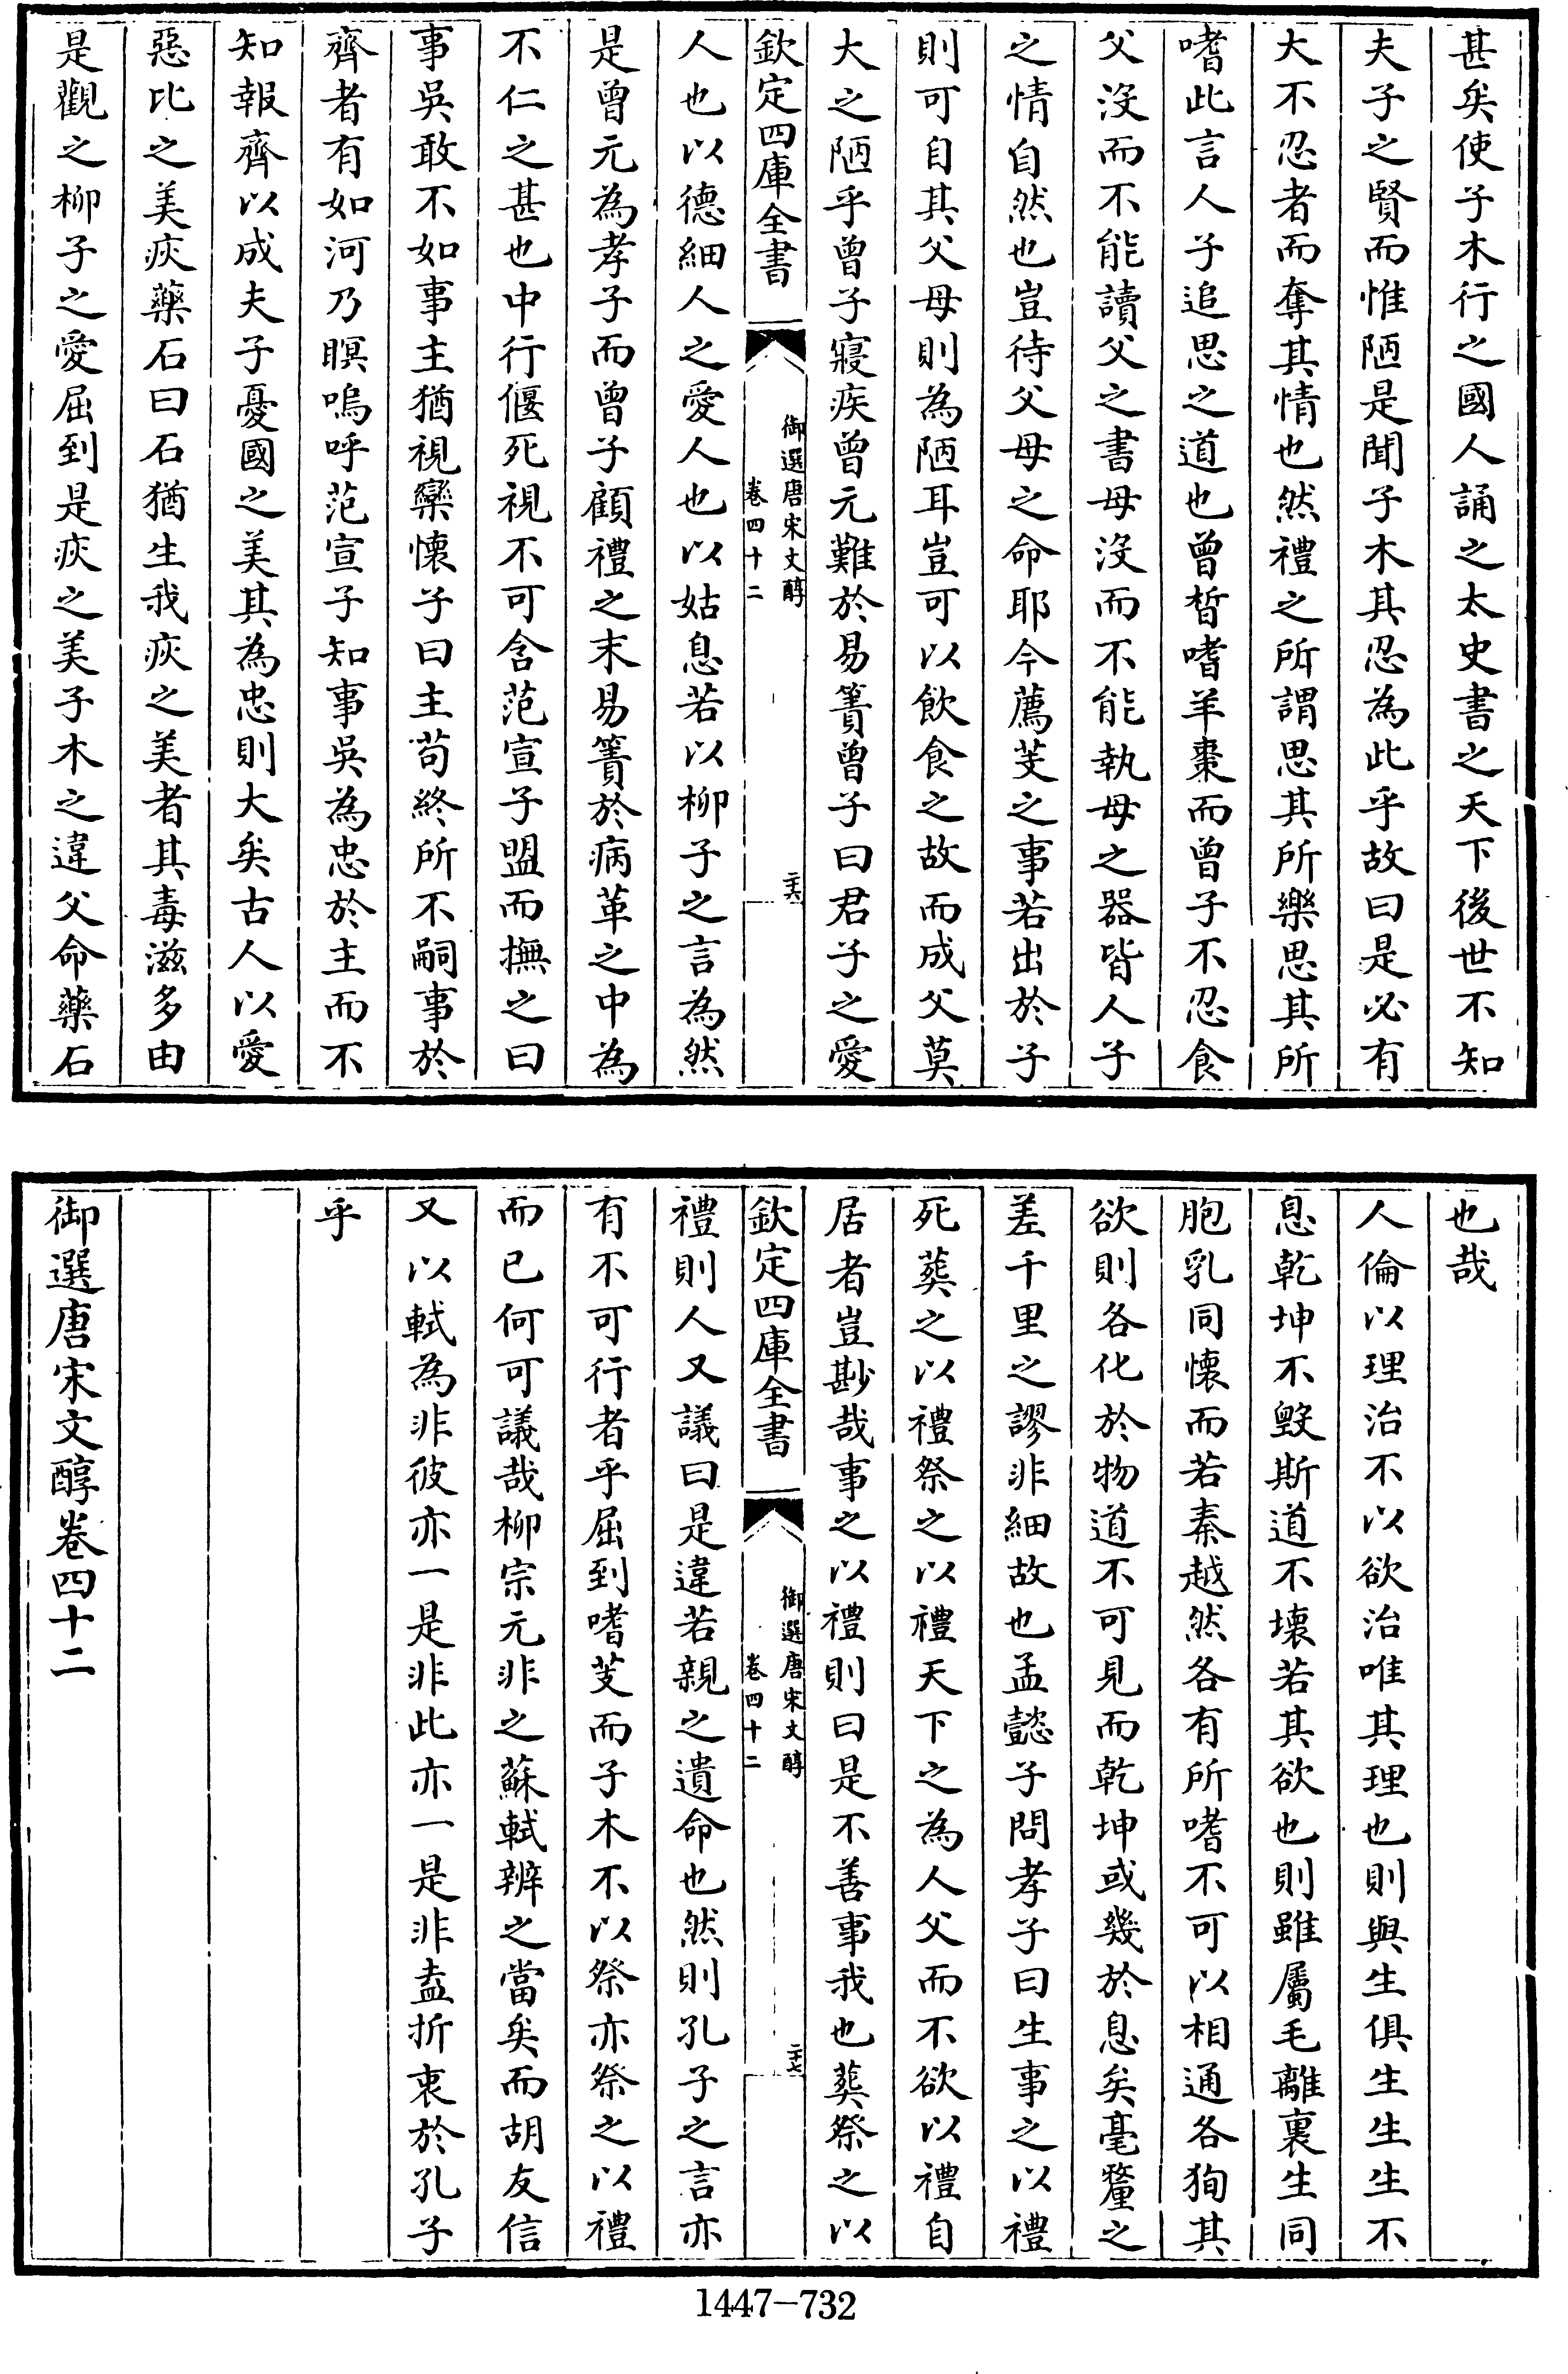 甚矣使子木行之國人誦之太史書之天下後世不知
夫子之賢而惟陋是聞子木其忍為此乎故曰是必有
大不忍者而奪其情也然禮之所謂思其所樂思其所
嗜此言人子追思之道也曾晳嗜羊棗而曾子不忍食
父沒而不能讀父之書母沒而不能執母之器皆人子
之情自然也豈待父母之命耶今薦芰之事若出於子
則可自其父母則為陋耳豈可以飲食之故而成父莫
大之陋乎曾子寢疾曾元難於易簀曾子曰君子之愛
欽定四庫全書
御選唐宋文醇
卷四十二
二十六
人也以德細人之愛人也以姑息若以柳子之言為然
是曾元為孝子而曾子顧禮之末易簀於病革之中為
不仁之甚也中行偃死視不可含范宣子盟而撫之曰
事吳敢不如事主猶視欒懷子曰主苟終所不嗣事於
齊者有如河乃瞑嗚呼范宣子知事吳為忠於主而不
知報齊以成夫子憂國之美其為忠則大矣古人以愛
惡比之美疢藥石曰石猶生我疢之美者其毒滋多由
是觀之柳子之愛屈到是疢之美子木之違父命藥石
也哉
人倫以理治不以欲治唯其理也則與生俱生生生不
息乾坤不毀斯道不壞若其欲也則雖屬毛離裏生同
胞乳同懷而若秦越然各有所嗜不可以相通各狥其
欲則各化於物道不可見而乾坤或幾於息矣毫釐之
差千里之謬非細故也孟懿子問孝子曰生事之以禮
死葬之以禮祭之以禮天下之為人父而不欲以禮自
居者豈尠哉事之以禮則曰是不善事我也葬祭之以
欽定四庫全書
御選唐宋文醇
卷四十二
二十七
禮則人又議曰是違若親之遺命也然則孔子之言亦
有不可行者乎屈到嗜芰而子木不以祭亦祭之以禮
而已何可議哉柳宗元非之蘇軾辨之當矣而胡友信
又以軾為非彼亦一是非此亦一是非盍折衷於孔子
乎
御選唐宋文醇卷四十二
1447-732